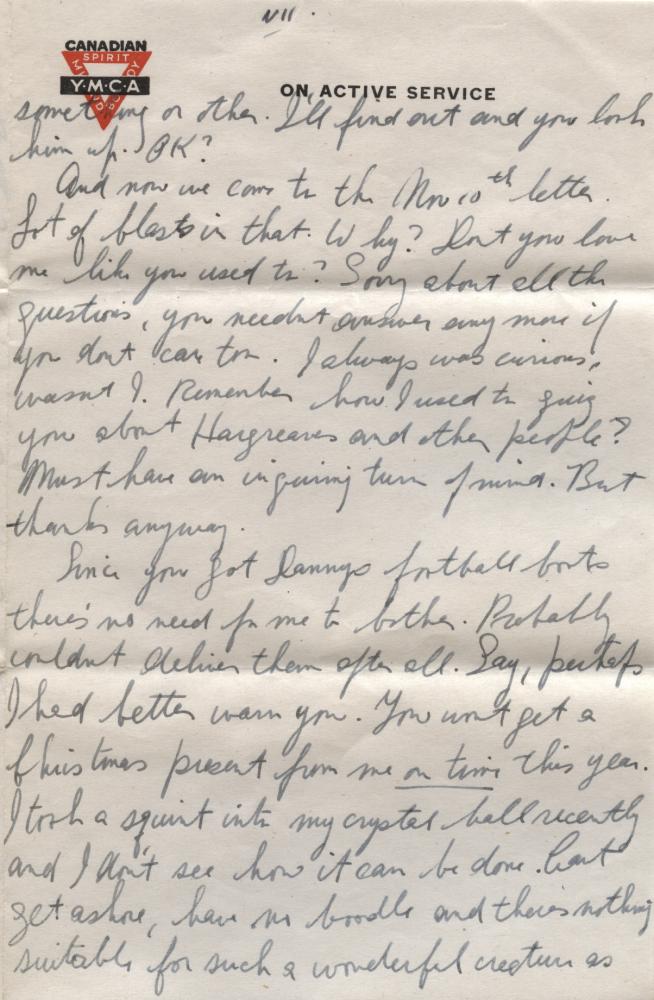 VII.
CANADIAN
SPIRIT
MIND BODY
Y·M·C·A
ON ACTIVE SERVICE
something or other. I'll find out and you look
him up. OK?
And now we come to the Nov 10th letter.
Lot of blasts in that. Why? Dont you love
me like you used to? Sorry about all the
questions, you neednt answer any more if
you dont care to. I always was curious,
wasnt I. Remember how I used to quiz
you about Hargreaves and other people?
Must have an inquiring turn of mind. But
thanks anyway.
Since you got Dannys football boots
there's no need for me to bother. Probably
couldnt deliver them after all. Say, perhaps
I had better warn you. You wont get a
Christmas present from me on time this year.
I took a squint into my crystal ball recently
and I don't see how it can be done. Cant
get ashore, have no boodle and theres nothing
suitable for such a wonderful creature as